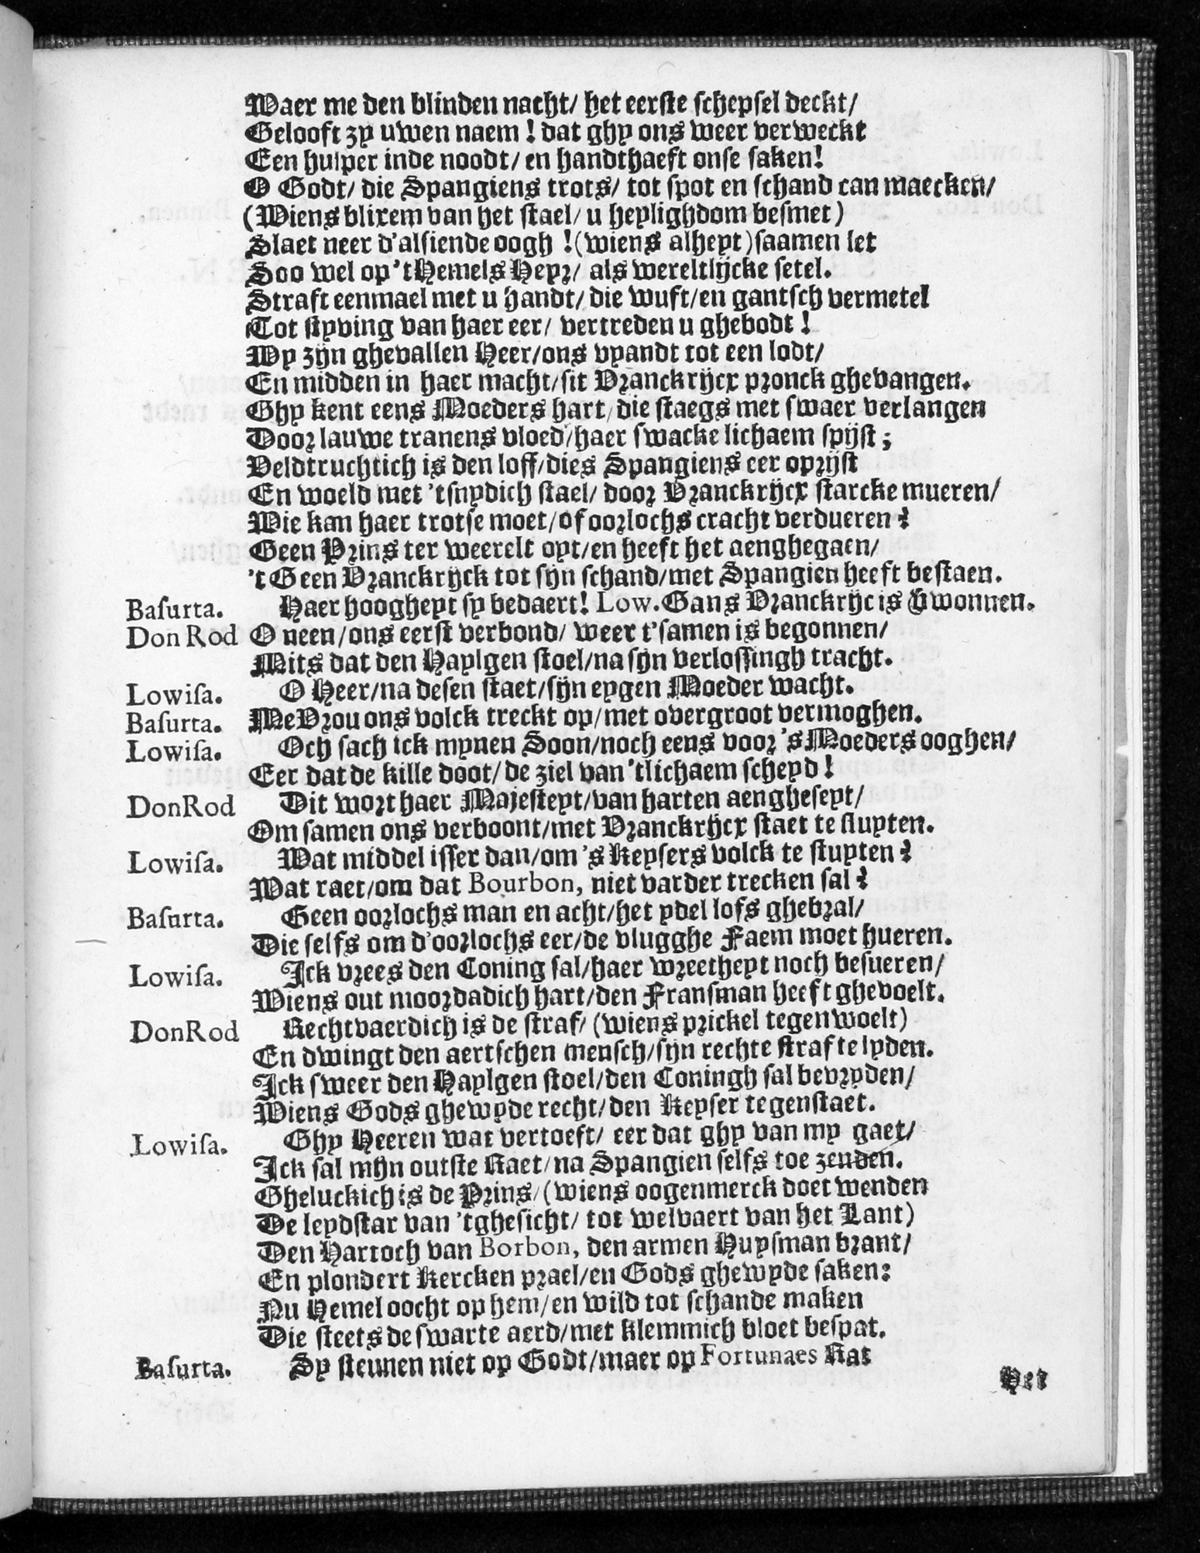 Waer me den blinden nacht/ het eerste schepsel deckt/
Gelooft zy uwen naem ! dat ghy ons weer verweckt
Een hulper inde noodt/ en handthaeft onse saken!
O Godt/ die Spangiens trots/ tot spot en schand can maecken/
(Wiens blixem van het stael/ u heylighdom besmet)
Slaet neer d'alsiende oogh !(wiens alheyt)saamen let
Soo wel op 't Hemels Heyr/ als wereltlijcke setel.
Straft eenmael met u handt/ die wuft/en gantsch vermetel
Tot styving van haer eer/ vertreden u ghebodt !
Wy zijn ghevallen Heer/ons vyandt tot een lodt/
En midden in haer macht/sit Vranckrijcx pronck ghevangen.
Ghy kent eens Moeders hart/die staegs met swaer verlangen
Door lauwe tranens vloed/haer swacke lichaem spijst ;
Veldtruchtich is den loff/dies Spangiens eer oprijst
En woeld met 't snydich stael/ door Vranckrijcx starcke mueren/
Wie kan haer trotse moet/of oorlochs cracht verdueren ?
Geen Prins ter weerelt oyt/en heeft het aenghegaen/
't Geen Vranckrijck tot sijn schand/met Spangien heeft bestaen.
Basurta. Haer hoogheyt sy bedaert! Low. Gans Vranckrijc is g'hwonnen.
Don Rod O neen/ons eerst verbond/ weer t'samen is begonnen/
Mits dat den Haylgen stoel/na sijn verlossingh tracht.
Lowisa. O Heer/na desen staet/sijn eygen Moeder wacht.
Basurta. MeVrou ons volck treckt op/met overgroot vermoghen.
Lowisa. Och sach ick mynen Soon/noch eens voor 's Moeders ooghen/
Eer dat de kille doot/de ziel van 'tlichaem scheyd !
DonRod Dit wort haer Majesteyt/van harten aengheseyt/
Om samen ons verboont/met Vranckrijcx staet te sluyten.
Lowisa. Wat middel isser dan/om 's Keysers volck te stuyten ?
Wat raet/om dat Bourbon, niet varder trecken sal ?
Basurta. Geen oorlochs man en acht/het ydel lofs ghebral/
Die selfs om d'oorlochs eer/de vlugghe Faem moet hueren.
Lowisa. Ick vrees den Coning sal/haer wreetheyt noch besueren/
Wiens out moordadich hart/den Fransman heeft ghevoelt.
DonRod Rechtvaerdich is de straf/ (wiens prickel tegenwoelt)
En dwingt den aertschen mensch/sijn rechte straf te lyden.
Ick sweer den Haylgen stoel/den Coningh sal bevryden/
Wiens Gods ghewyde recht/den Keyser tegenstaet.
Lowisa. Ghy Heeren wat vertoeft/ eer dat ghy van my gaet/
Ick sal mijn outste Raet/na Spangien selfs toe zenden.
Gheluckich is de Prins/(wiens oogenmerck doet wenden
De leydstar van 'tghesicht/ tot welvaert van het Lant)
Den Hartoch van Borbon, den armen Huysman brant/
En plondert Kercken prael/en Gods ghewyde saken:
Nu Hemel oocht op hem/en wild tot schande maken
Die steets de swarte aerd/met klemmich bloet bespat.
Basurta. Sy steunen niet op Godt/maer op Fortunaes Rat
Het